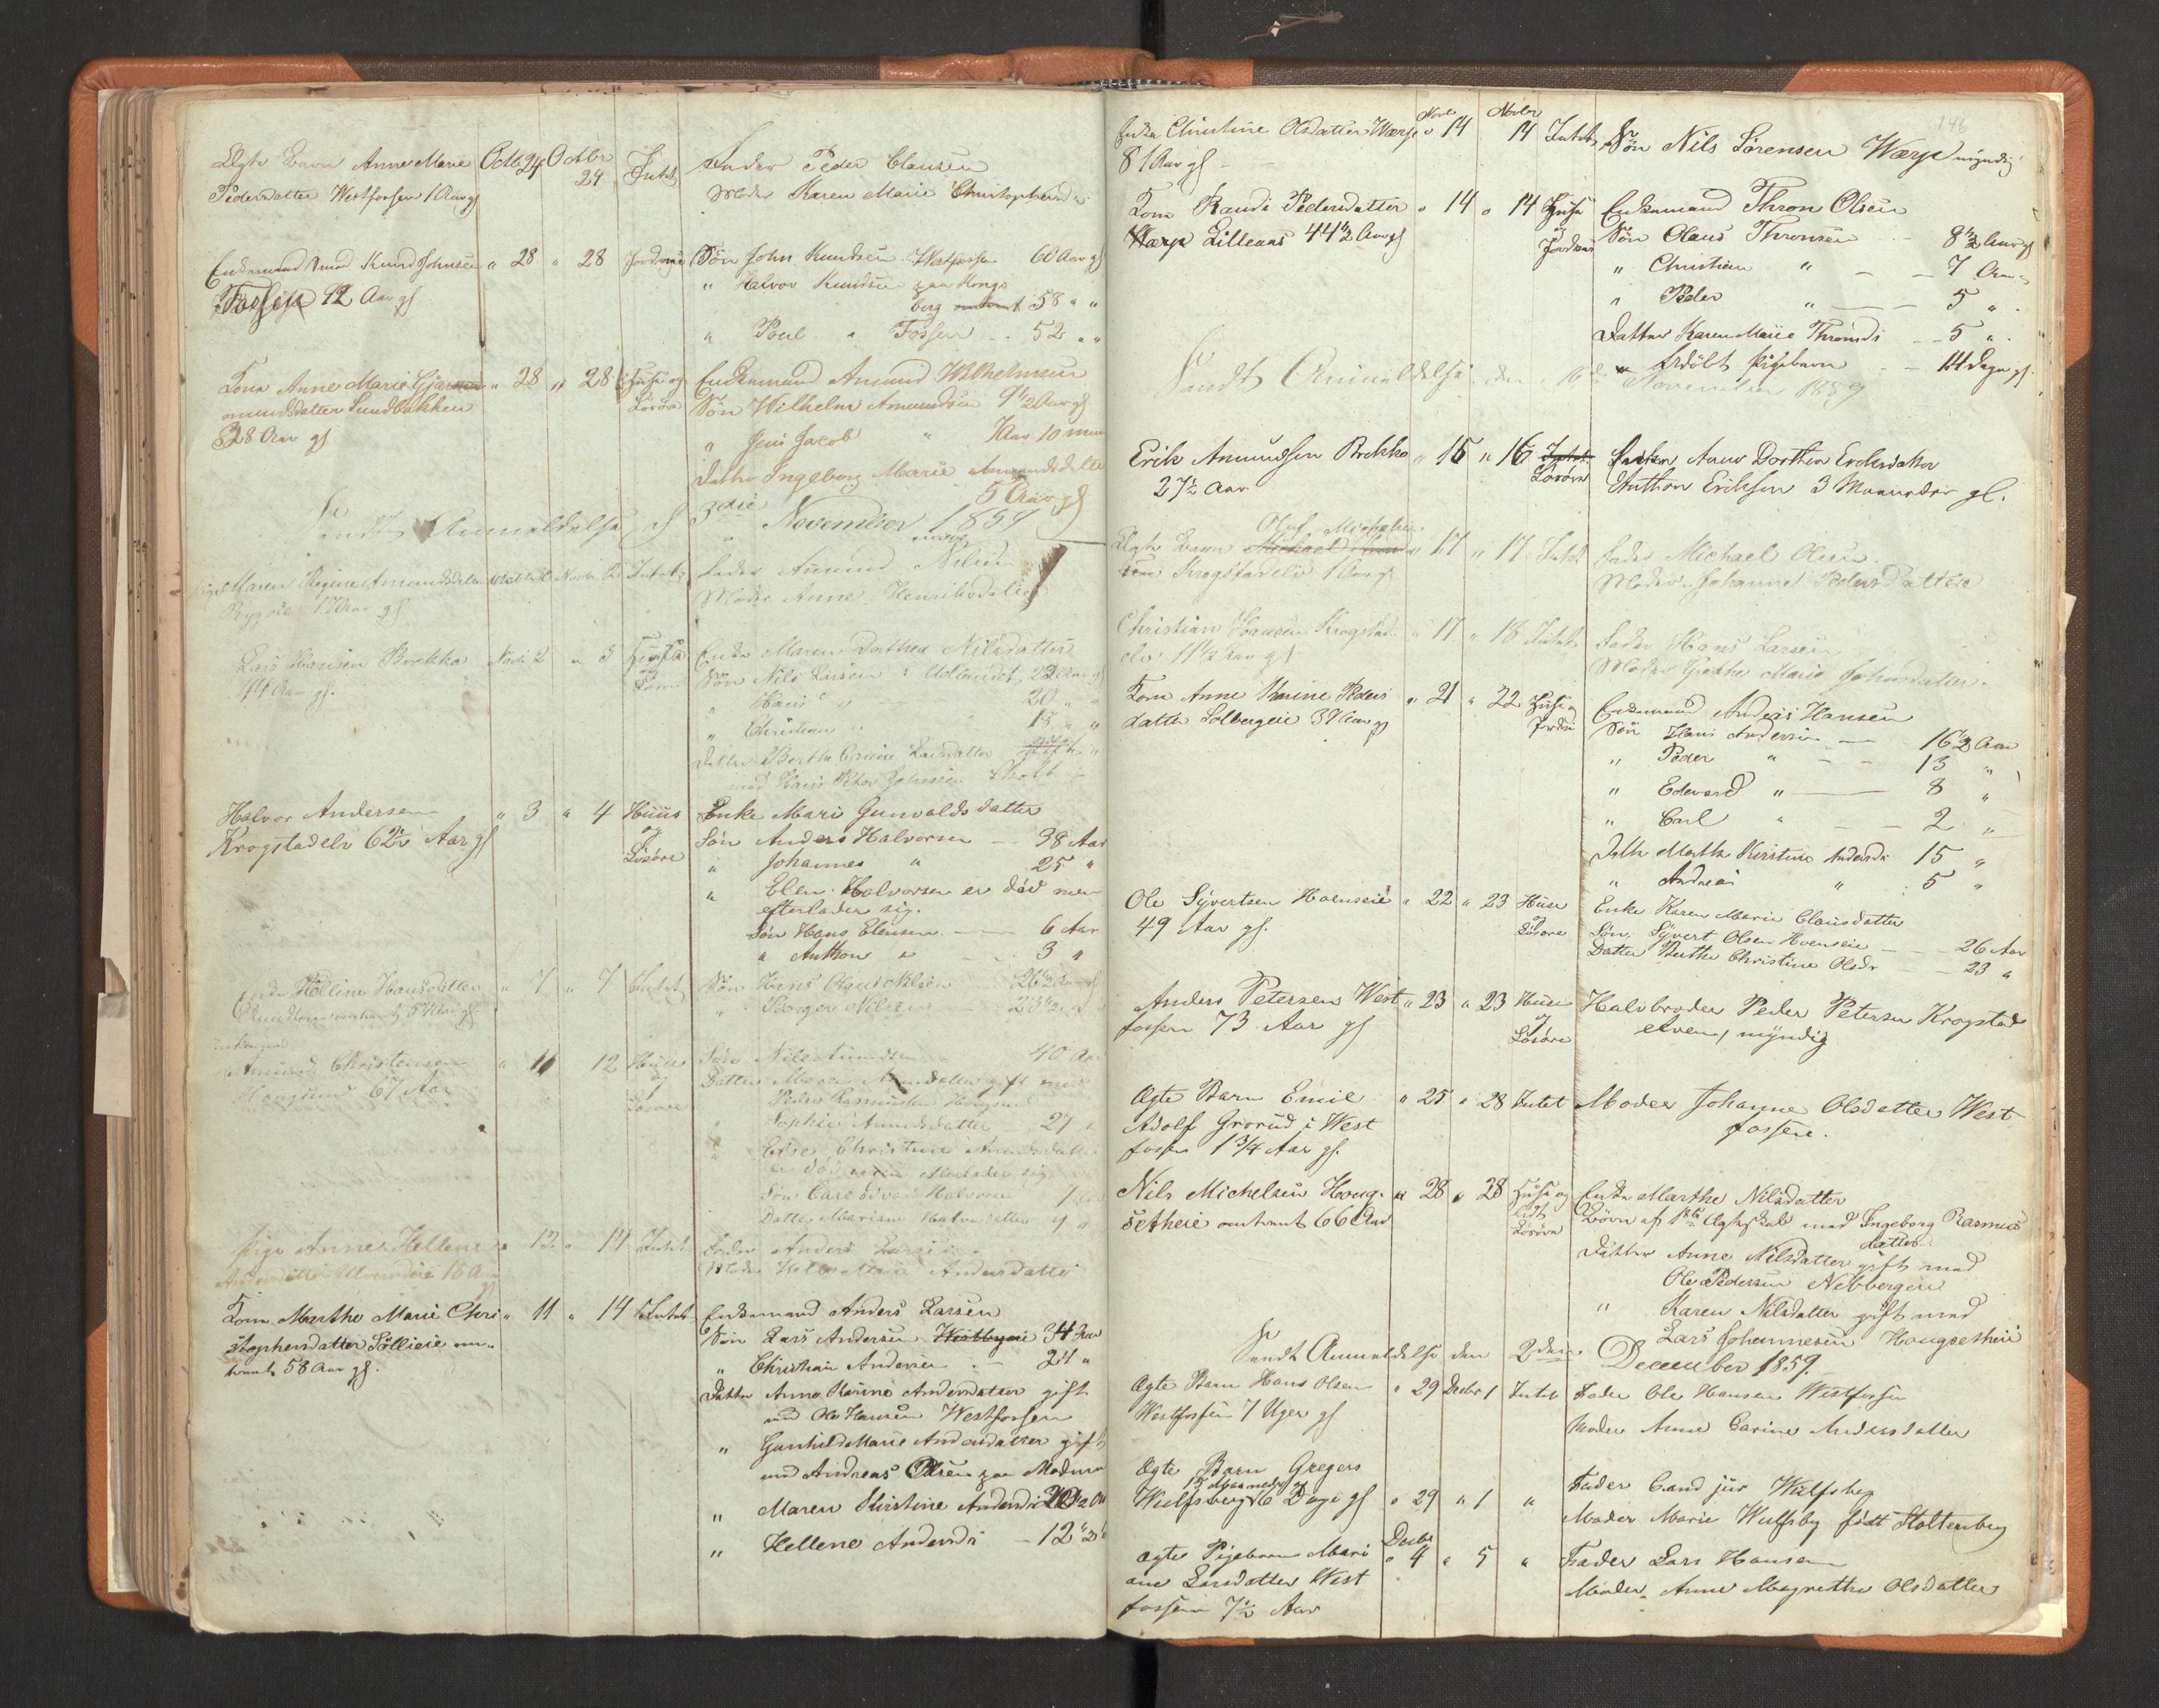 Ægte Barn Anne Marie Octb. 24 Octbr 24 Intet Fader Peder Clausen
Pedersdatter Westfossen 1 Aar gl Moder Karen Marie Christophersd
Enkemand Knud Johnsen " 28 " 28 Søn John Knudsen Westfossen 60 Aar gl
Fossen 92 Aar gl " Halvor Knudsen paa Kongs
berg 58 " "
" Poul " Fossen - 52 " "
Kone Anne Marie " 28 " 28 Huse og Enkemand Amund Wilhelmsen
Lundbakken Løsøre Søn Wilhelm Amundsen 9½ Aar gl
28 Aar gl " Jens Jacob " 7 Aar 10
Datter Ingeborg Marie Amundsdatter
5 Aar gl
Sendt Anmeldelse 3die November 1859
Maren Regine Amundsdatter Novbr 2 Intet Fader Amund Nilsen
17 Aar gl Moder Anne Henriksdatter
Lars Hansen Brekke Novbr 2 " 3 Enke Maren Dorthea Nilsdatter
44 Aar gl. og Søn Nils Larsen i Udlandet, 22 Aar gl
" Hans " 20 " "
" Christian 15 " "
Datter Berthe Larsdatter gift
med Hans Peter Johnsen
Halvor Andersen " 3 " 4 Huus Enke Mari Gunvaldsdatter
Krogstadelv 62½ Aar gl og Løsøre Søn Anders Halvorsen — 38 Aar
" Johannes " 25 "
" Elen Halvorsen er død men
efterlader sig.
Søn Hans Elensen — 6 Aar
" Anthon " 3 "
Helline Hansdatter " 7 " 7 Intet Søn Hans Nilsen 26½ Aar gl
" Nilsen 23½ "
Amund Christensen " 11 12 Huus Søn Nils Amundsen 40 Aar
Hougsund 67 Aar og Løsøre Datter Maren Amundsdatter gift med
Peder Rasmussen Hougsund
" Sophie Amundsdatter 27 "
" Else Christine Amundsdatter
er død men efterlader sig
Søn Carl Halvorsen 7
Datter Mariane Halvorsdatter 4 "
Pige Anne Hellene " 12 " 14 Intet Fader Anders Larsen
Moder Andersdatter
Kone Marthe Marie Chri " 11 " 14 Intet Enkemand Anders Larsen
stophersdatter Sollieie om- Søn Lars Andersen 34 Aar
trent 58 Aar gl. " Christian Andersen — 24 "
Datter Anne Karine Andersdatter gift
med Ole Hansen Westfossen
" Gunhild Marie Andersdatter gift
med Andreas Olsen paa Modum
" Maren Kirstine Andersdr 20½ Aar
" Hellene Andersdr — 12½
146
Enke Christine Olsdatter Warp Novbr 14 Novbr 14 Intet Søn Nils Sørensen Warp myndig
81 Aar gl
Kone Randi Pedersdatter " 14 " 14 Huse Enkemand Thron Olsen
Warp Lilleaas 44½ Aar gl og Søn Olaus Thronsen - 8½ Aar gl
" Christian " — 7 Aar
" Peder " — 5 "
Datter Karen Marie Thronsdr — 5 "
" Udøbt Pigebarn — 14 Dage gl.
Sendt Anmeldelse den 16de November 1859
Erik Amundsen Brekke " 15 " 16 Intet Enken Anne Dorthea Eriksdatter
27½ Aar Løsøre Anthon Eriksen 3 Maaneder gl.
Ægte Barn Oluf Michelsen " 17 " 17 Intet Fader Michael Olsen
Krogstadelv 1 Aar gl Moder Johanne Pedersdatter
Christian Hansen Krogstad " 17 " 18 Intet Fader Hans Larsen
elv 11½ Aar gl Moder Grethe Marie Johnsdatter.
Kone Anne Karine Peders " 21 " 22 Huse og Enkemand Anders Hansen
datter Solbergeie 37 Aar gl Søn Hans Andersen — 16½ Aar
" Peder " — 13 "
" Edevard " — 8 "
" Carl " — 2 "
Datter Marthe Kirstine Andersdr 15 "
" Andrea " 5 "
Ole Syvertsen Hoenseie " 22 " 23 Huse Enke Karen Marie Clausdatter
49 Aar gl. og Løsøre Søn Syvert Olsen Hoenseie — 26 Aar
Datter Berthe Christine Olsdr — 23 "
Anders Petersen West " 23 " 23 Huse Halvbroder Peder Petersen Krogstad
fossen 73 Aar gl og Løsøre elven, myndig
Ægte Barn Emil " 25 " 28 Intet Moder Johanne Olsdatter West
Adolf Grorud i West fossen.
fossen 1¾ Aar gl.
Nils Michelsen Houg- " 28 " 28 Huse og Enke Marthe Nilsdatter
setheie omtrent 66 Aar lidt Løsøre Børn af 1ste Ægteskab med Ingeborg Rasmus
datter
Datter Anne Nilsdatter gift med
Ole Pedersen Nebbergen
" Karen Nilsdatter gift med
Lars Johannesen Hougsetheie
Sendt Anmeldelse den 2den December 1859.
Ægte Barn Hans Olsen " 29 Decbr 1 Intet Fader Ole Hansen Westfossen
Westfossen 7 Uger gl Moder Anne Carine Andersdatter
Ægte Barn Gregers
15 Maaneder og
Wulfsberg 6 Dage gl " 29 " 1 " Fader Cand jur Wulfsberg
Moder Marie Wulfsberg født Stoltenberg
Ægte Pigebarn Mari Decbr 4 " 5 " Fader Lars Hansen
ane Larsdatter West Moder Anne Magrethe Olsdatter
fossen 7½ Aar